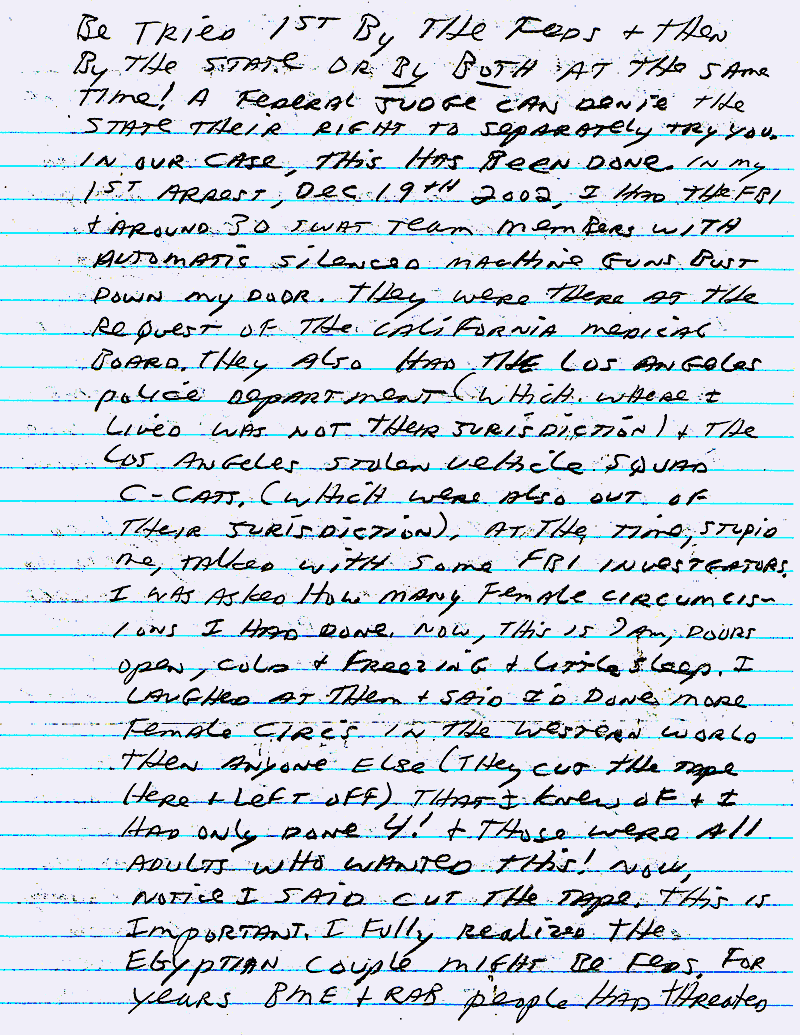 Be TRIED 1ST BY THE FEDS + THEN
BY THE STATE OR BY BOTH AT THE SAME
TIME! A FEDERAL JUDGE CAN DENIE THE
STATE THEIR RIGHT TO SEPARATELY TRY YOU.
IN OUR CASE, THIS HAS BEEN DONE. IN MY
1ST ARREST, DEC 19TH 2002, I HAD THE FBI
+ AROUND 30 SWAT TEAM MEMBERS WITH
AUTOMATIC SILENCED MACHINE GUNS BUST
DOWN MY DOOR. THEY WERE THERE AT THE
REQUEST OF THE CALIFORNIA MEDICAL
BOARD. THEY ALSO HAD THE LOS ANGELES
POLICE DEPARTMENT (WHICH WHERE I
LIVED WAS NOT THEIR JURISDICTION) + THE
LOS ANGELES STOLEN VEHICLE SQUAD
C-CATS. (WHICH WERE ALSO OUT OF
THEIR JURISDICTION). AT THE TIME, STUPID
ME, TALKED WITH SOME FBI INVESTGATORS.
I WAS ASKED HOW MANY FEMALE CIRCUMCIS-
IONS I HAD DONE. NOW, THIS IS 7AM, DOORS
OPEN, COLD + FREEZING + LITTLE SLEEP. I
LAUGHED AT THEM + SAID I'D DONE MORE
FEMALE CIRC'S IN THE WESTERN WORLD
THEN ANYONE ELSE (THEY CUT THE TAPE
HERE + LEFT OFF) THAT I KNEW OF + I
HAD ONLY DONE 4! + THOSE WERE ALL
ADULTS WHO WANTED THIS! NOW,
NOTICE I SAID CUT THE TAPE. THIS IS
IMPORTANT. I FULLY REALIZED THE
EGYPTIAN COUPLE MIGHT BE FEDS. FOR
YEARS BME + RAB PEOPLE HAD THREATED